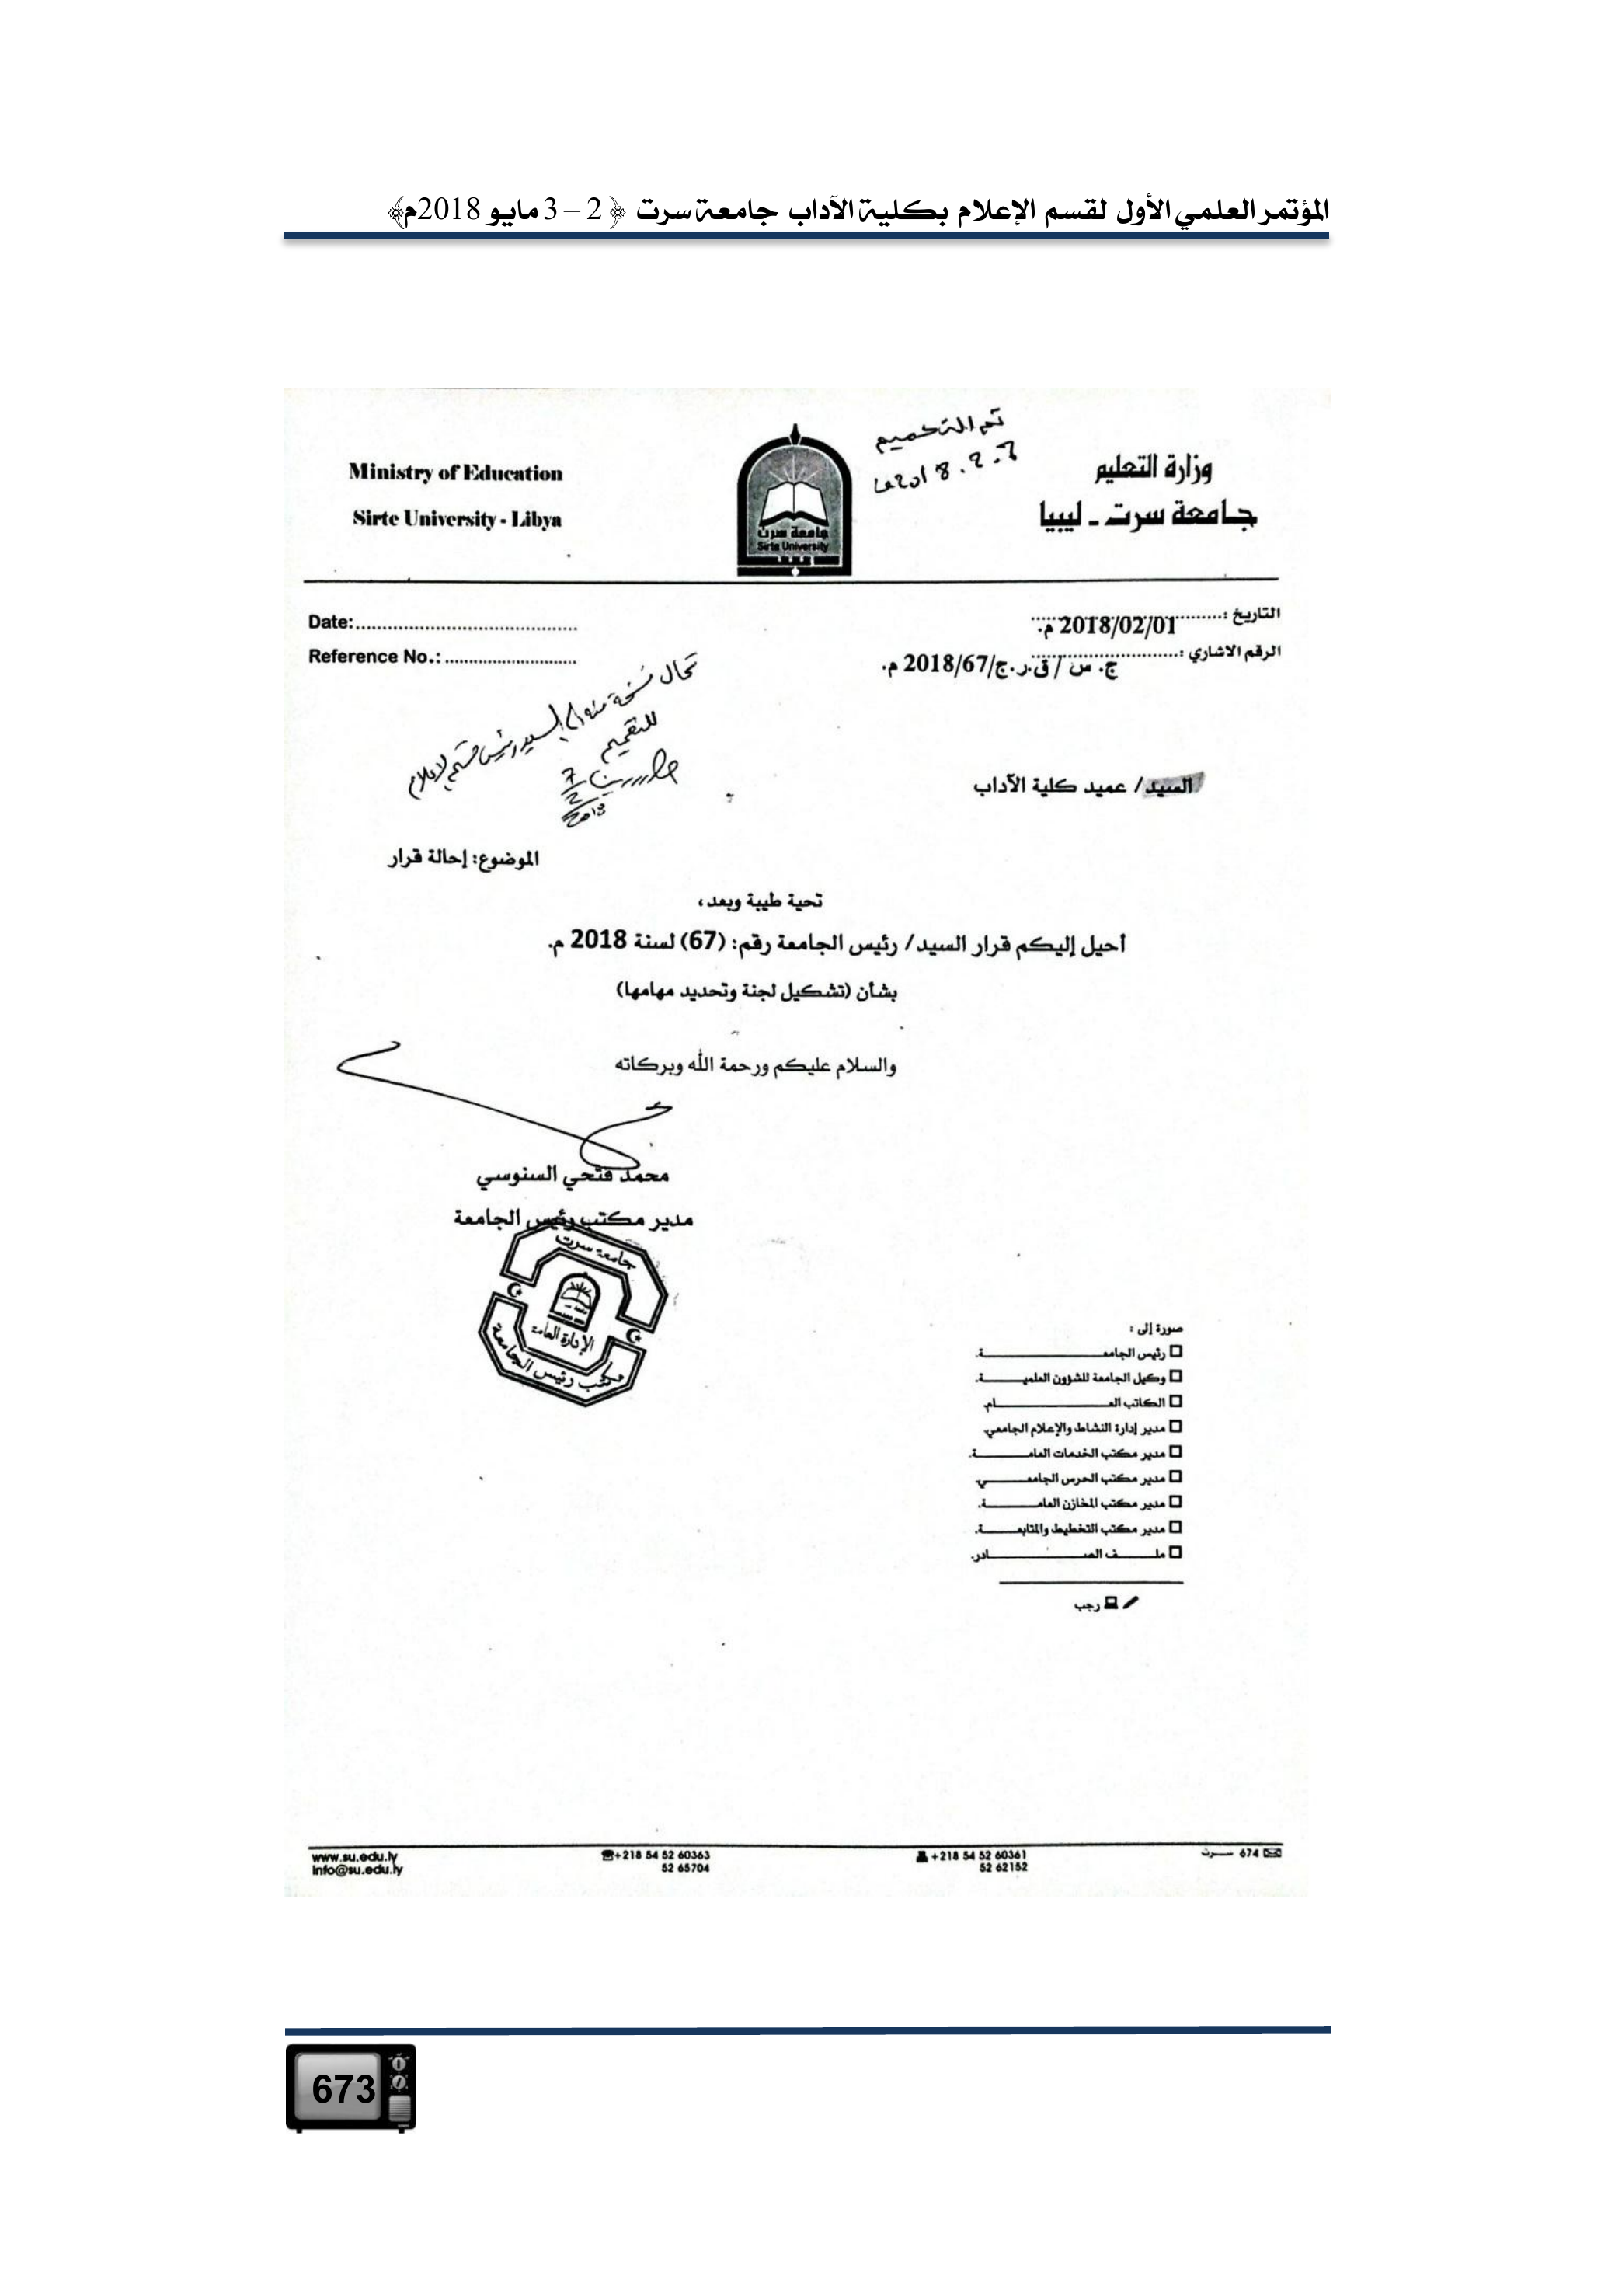 المؤتمر العلمي الأول لقسم الإعلام بكلية الآداب جامعة سرت ﴿ 2 – 3 مايو 2018م﴾
Ministry of Education
Sirte University - Libya
وزارة التعليم
جامعة سرت ـ ليبيا
تم التعميم
جامعة سرت
Sirte University
التاريخ :
2018/02/01 م.
الرقم الاشاري :
ج. س / ق.ر.ج/2018/67 م.
Date:
Reference No.:
تحال نسخة منه إلى السيد رئيس قسم الاعلام
للتعميم
7
2
2018
السيد/ عميد كلية الآداب
الموضوع: إحالة قرار
تحية طيبة وبعد ،
أحيل إليكم قرار السيد/ رئيس الجامعة رقم: (67) لسنة 2018 م.
بشأن (تشكيل لجنة وتحديد مهامها)
والسلام عليكم ورحمة الله وبركاته
محمد فتحي السنوسي
مدير مكتب رئيس الجامعة
جامعة سرت
الإدارة العامة
مكتب رئيس الجامعة
صورة إلى :
رئيس الجامعـــة.
وكيل الجامعة للشؤون العلميـــة.
الكاتب العـــام.
مدير إدارة النشاط والإعلام الجامعي.
مدير مكتب الخدمات العامـــة.
مدير مكتب الحرس الجامعـــي.
مدير مكتب المخازن العامـــة.
مدير مكتب التخطيط والمتابعـــة.
ملـــف الصـــادر.
رجب
www.su.edu.ly
info@su.edu.ly
+218 54 52 60363
52 65704
+218 54 52 60361
52 62152
674 سـرت
673